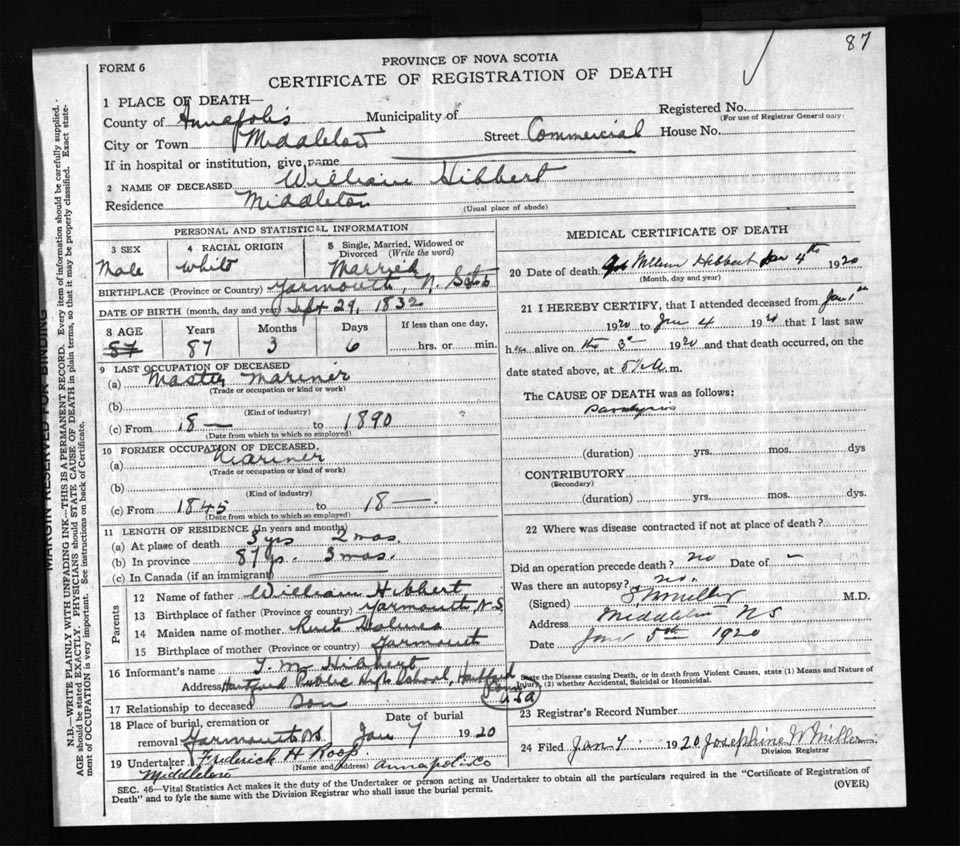 87
FORM 6
PROVINCE OF NOVA SCOTIA
CERTIFICATE OF REGISTRATION OF DEATH
1 PLACE OF DEATH—
County of Annapolis Municipality of Registered No.
(For use of Registrar General only)
City or Town Middleton Street Commercial House No.
If in hospital or institution, give name
2 NAME OF DECEASED William Hibbert
Residence Middleton
(Usual place of abode)
PERSONAL AND STATISTICAL INFORMATION
3 SEX 4 RACIAL ORIGIN 5 Single, Married, Widowed or Divorced (Write the word)
Male White Married
BIRTHPLACE (Province or Country) Yarmouth, N.
DATE OF BIRTH (month, day and year) Sept 29, 1832
8 AGE Years Months Days If less than one day,
87 87 3 6 hrs. or min.
9 LAST OCCUPATION OF DECEASED
(a) Master Mariner
(Trade or occupation or kind or work)
(b)
(Kind of industry)
(c) From 18— to 1890
(Date from which to which so employed)
10 FORMER OCCUPATION OF DECEASED
(a) Mariner
(Trade or occupation or kind of work)
(b)
(Kind of industry)
(c) From 1845 to 18—
(Date from which to which so employed)
11 LENGTH OF RESIDENCE (In years and months)
(a) At place of death 3 yrs 2 mos.
(b) In province 87 ys. 3 mos.
(c) In Canada (if an immigrant)
Parents
12 Name of father William Hibbert
13 Birthplace of father (Province or country) Yarmouth N.S.
14 Maiden name of mother
15 Birthplace of mother (Province or country) Yarmouth
16 Informant's name T. M. Hibbert
Address Hartford Public High School, Hartford Conn USA
17 Relationship to deceased Son
18 Place of burial, cremation or removal Yarmouth NS Date of burial Jan 7 1920
19 Undertaker Frederick H Roop
(Name and Address) Annapolis Co
Middleton
MEDICAL CERTIFICATE OF DEATH
20 Date of death William Hebbert Jan 4th 1920
(Month, day and year)
21 I HEREBY CERTIFY, that I attended deceased from Jan 1st
1920 to Jan 4 1920 that I last saw
h alive on the 3 1920 and that death occurred, on the
date stated above, at m.
The CAUSE OF DEATH was as follows:
Paralysis
(duration) yrs. mos. dys
CONTRIBUTORY
(Secondary)
(duration) yrs. mos. dys.
22 Where was disease contracted if not at place of death?
Did an operation precede death? no Date of —
Was there an autopsy? no.
(Signed) Miller M.D.
Address Middleton NS
Date Jan 5th 1920
State the Disease causing Death, or in death from Violent Causes, state (1) Means and Nature of
Injury, (2) whether Accidental, Suicidal or Homicidal.
23 Registrar's Record Number
24 Filed Jan 7 1920 Josephine W Miller
Division Registrar
SEC. 46—Vital Statistics Act makes it the duty of the Undertaker or person acting as Undertaker to obtain all the particulars required in the "Certificate of Registration of
Death" and to fyle the same with the Division Registrar who shall issue the burial permit.
(OVER)
MARGIN RESERVED FOR BINDING
N.B.—WRITE PLAINLY WITH UNFADING INK—THIS IS A PERMANENT RECORD. Every item of information should be carefully supplied.
AGE should be stated EXACTLY. PHYSICIANS should STATE CAUSE OF DEATH in plain terms, so that it may be properly classified. Exact state-
ment of OCCUPATION is very important. See instructions on back of Certificate.